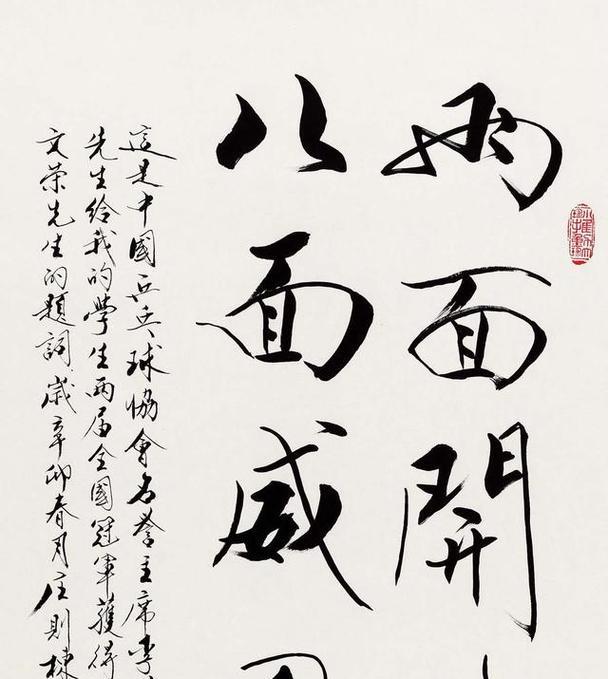 两面開
八面威
這是中國乒乓球協會名誉主席李
先生给我的學生两届全國冠軍獲得
文荣先生的題詞歲辛卯春月庄則棟